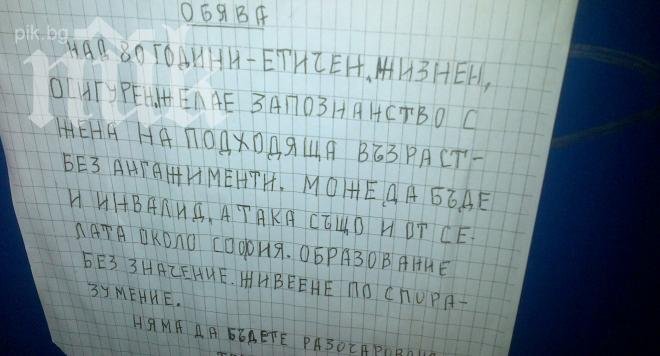 ОБЯВА
pik.bg
НАД 80 ГОДИНИ - ЕТИЧЕН, ЖИЗНЕН,
ОСИГУРЕН, ЖЕЛАЕ ЗАПОЗНАНСТВО С
ЖЕНА НА ПОДХОДЯЩА ВЪЗРАСТ -
БЕЗ АНГАЖИМЕНТИ. МОЖЕ ДА БЪДЕ
И ИНВАЛИД, А ТАКА СЪЩО И ОТ СЕ-
ЛАТА ОКОЛО СОФИЯ. ОБРАЗОВАНИЕ
БЕЗ ЗНАЧЕНИЕ. ЖИВЕЕНЕ ПО СПОРА-
ЗУМЕНИЕ.
НЯМА ДА БЪДЕТЕ РАЗОЧАРОВАНА